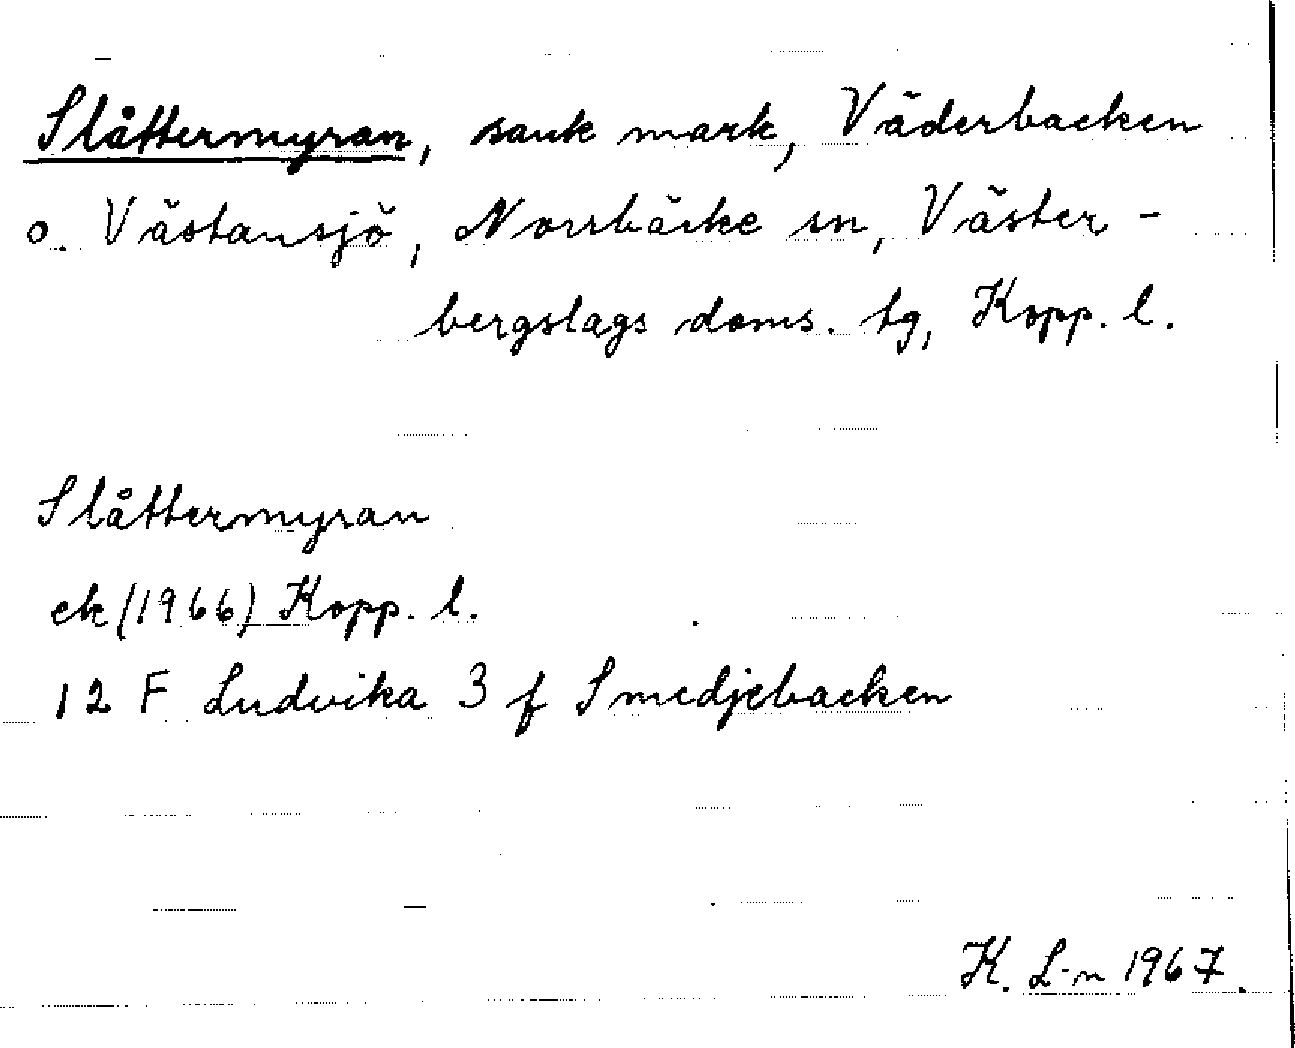 Slåttermyran, sank mark, Väderbacken
o. Västansjö, Norrbärke sn, Väster-
bergslags doms. tg, Kopp. l.
Slåttermyran
ek (1966) Kopp. l.
12 F Ludvika 3 f Smedjebacken
K. L-n 1967.